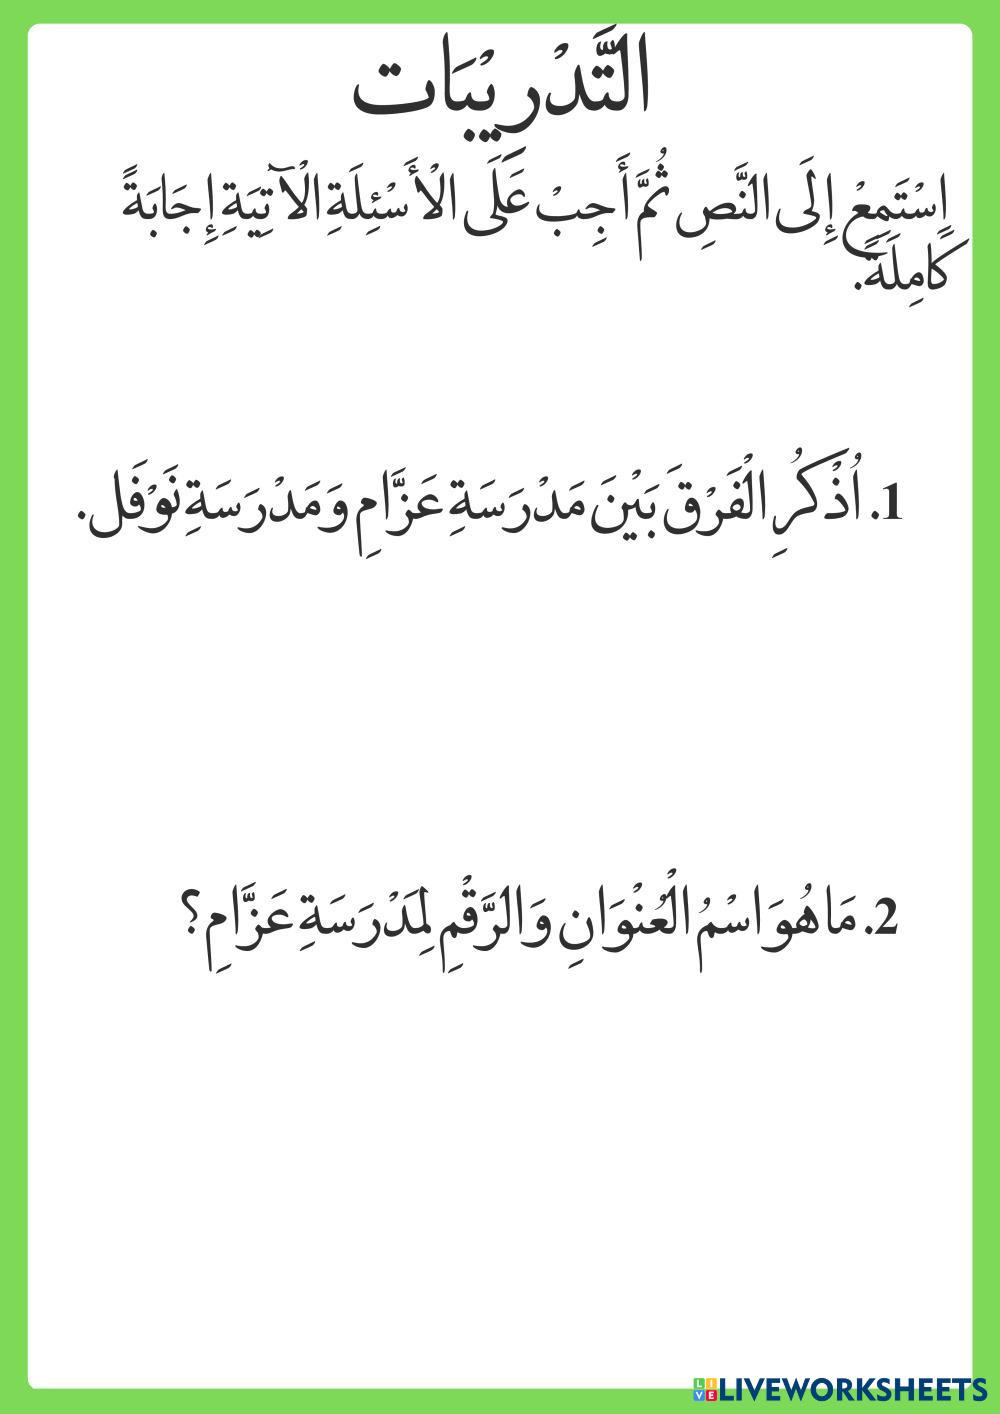 التَّدْرِيْبَات
اِسْتَمِعْ إِلَى النَّصِ ثُمَّ أَجِبْ عَلَى الْأَسْئِلَةِ الْآتِيَةِ إِجَابَةً
كَامِلَةً.
1. اُذْكُرِ الْفَرْقَ بَيْنَ مَدْرَسَةِ عَزَّامِ وَمَدْرَسَةِ نَوْفَل.
2. مَا هُوَ اسْمُ الْعُنْوَانِ وَالرَّقْمِ لِمَدْرَسَةِ عَزَّامِ؟
LIVE LIVEWORKSHEETS